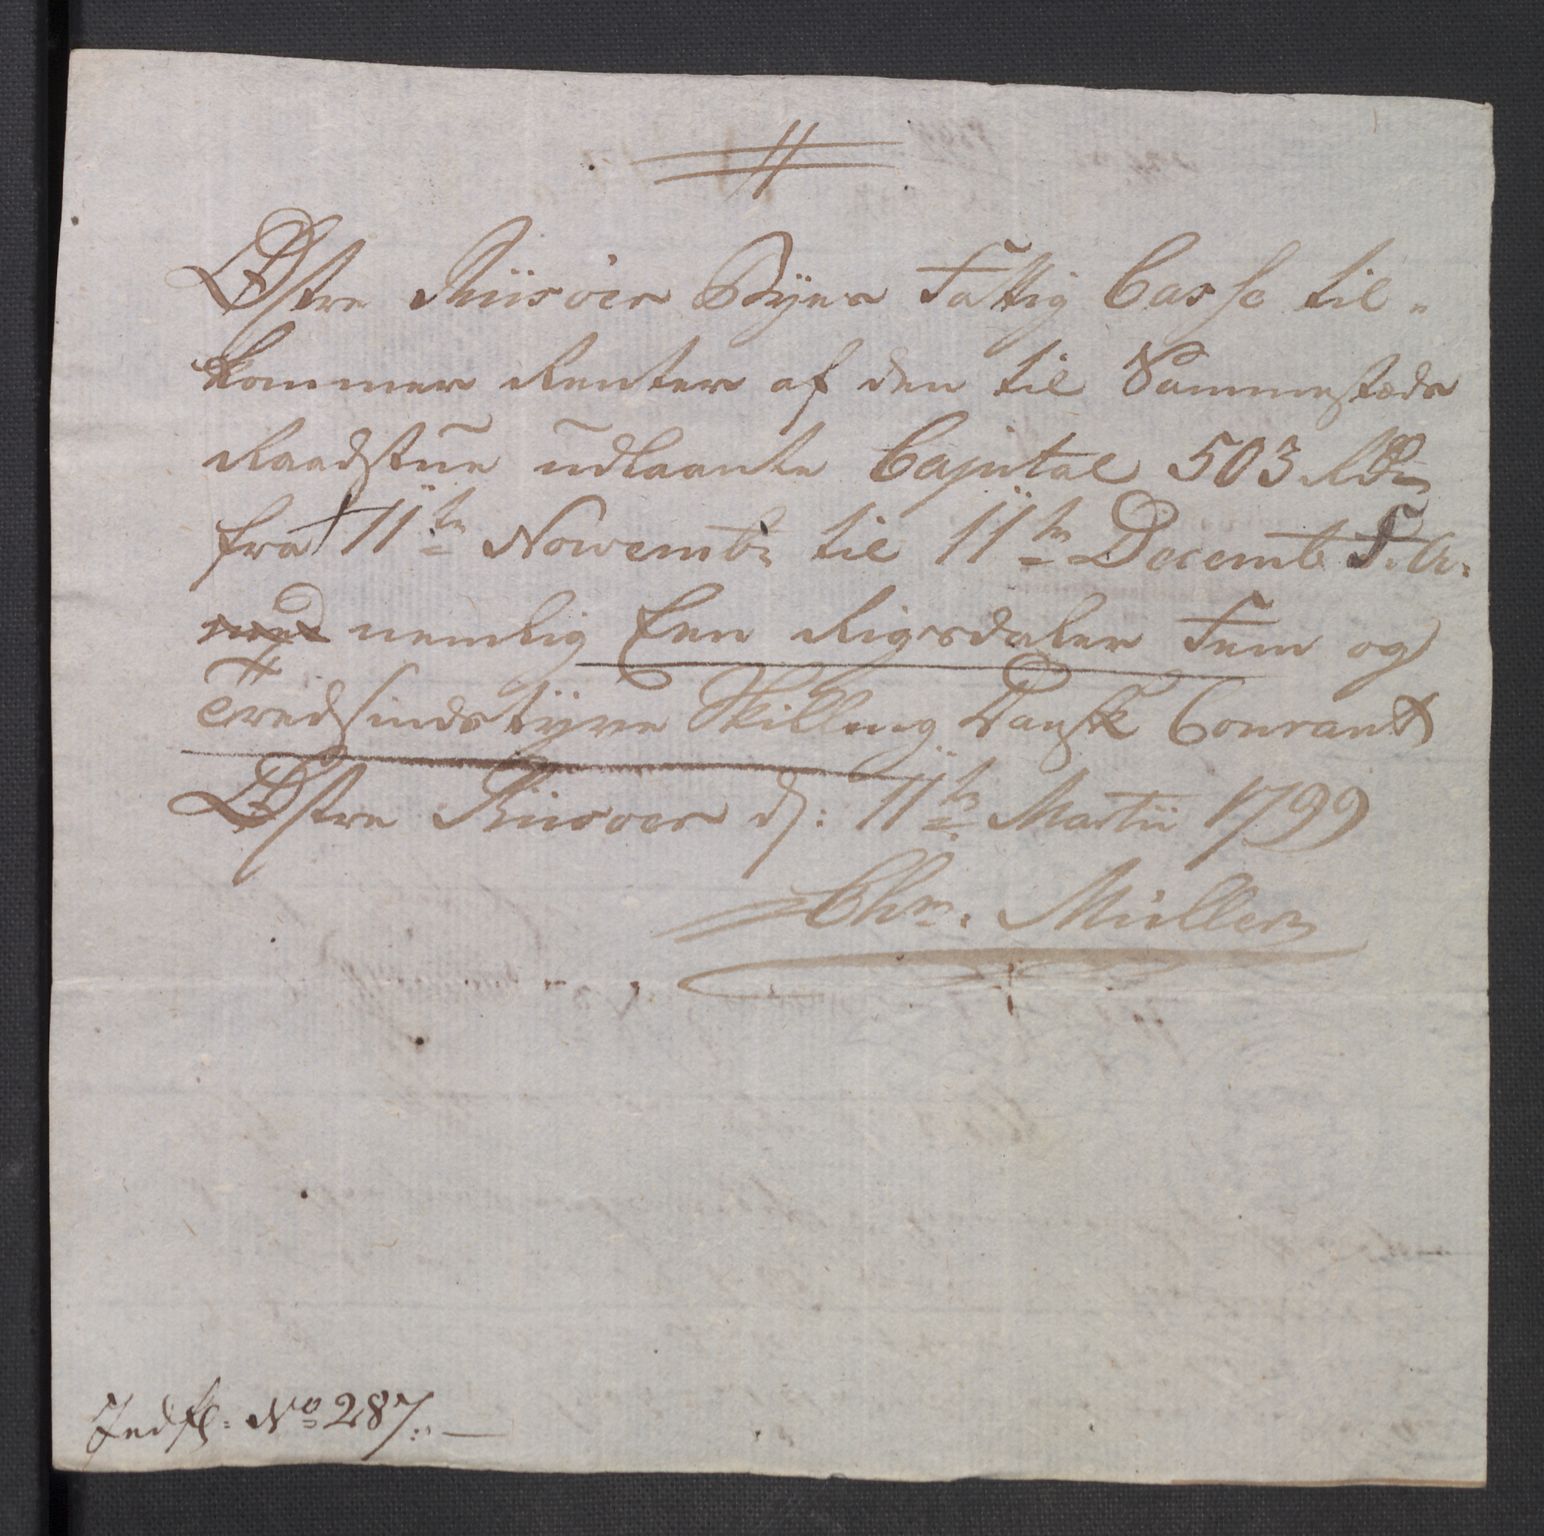 Østre Riisöer Byes Fattig Casse til-
kommer Renter af den til Sammestæds
Raadstue udlaante Capital 503 Rd
fra 11te Novembr til 11te Decemb: F: A:
nemlig Een Rigsdaler Fem og
Tredsindstyve Skilling Dansk Courant
Østre Riisöer d: 11te Martii 1799
Chr. Müller
No 287.